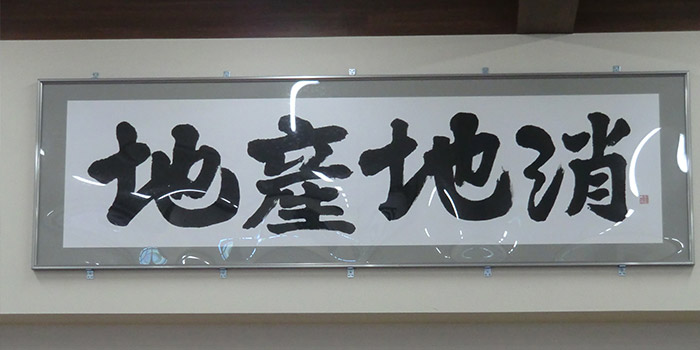 地産地消